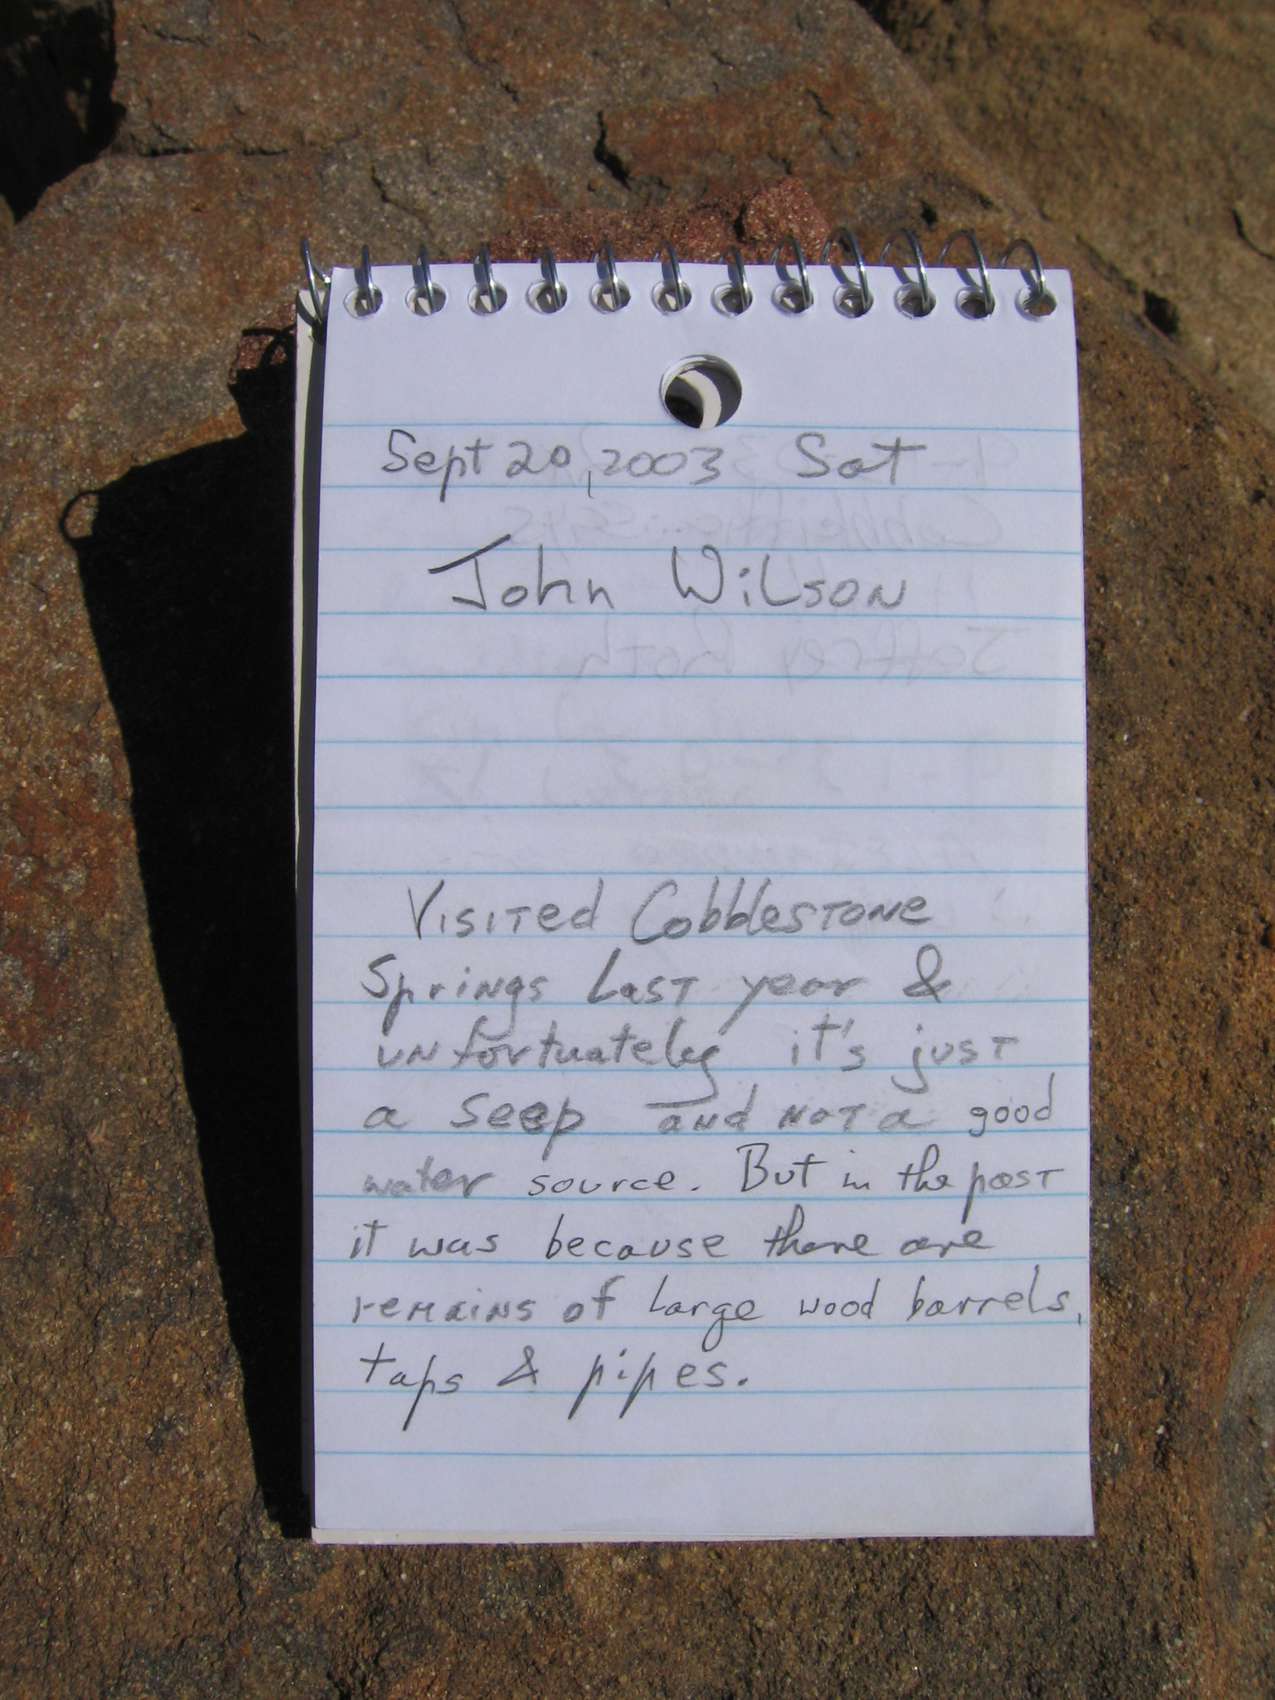 Sept 20, 2003 Sat
John Wilson
Visited Cobblestone
Springs last year &
unfortuately it's just
a seep and not a good
water source. But in the past
it was because there are
remains of large wood barrels,
taps & pipes.